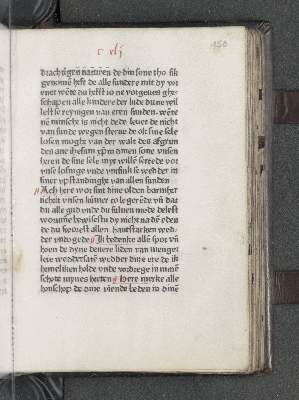 c xlj
150
diachtigen naturen de din sone tho sik
genomen heft de alle sundere mit dy vor
enet wente du hefft io ne vorgeues ghe
schapen alle kindere der lude du ne wil
lest se reynigen van eren sunden wente
nen minsche is nicht de de leuet de nicht
van sunde wegen sterue de ok sine sele
losen moghe van der walt des afgrun
den ane ihesum xpm dinen sone vnsen
heren de sine sele myt willen sette de vor
vnse losinge vnde vnsink se wedder in
siner vpstandinghe van allen sunden
Ach here wor sint dine olden barmher
ticheit vnsen künner to legerde vn dat
du alle gud vnde du saluen mede delest
wo du
de du suluest allen hantstarken wed
der vnde grede Ik bedenke alle spot vn
hoen de dyne denere liden van menger
leie weddersaten wedder dine ere de ik
hemeliken holde vnde vordrege in mine
schote mynes herten Here merke alle
honschop de dine viende beden in dine